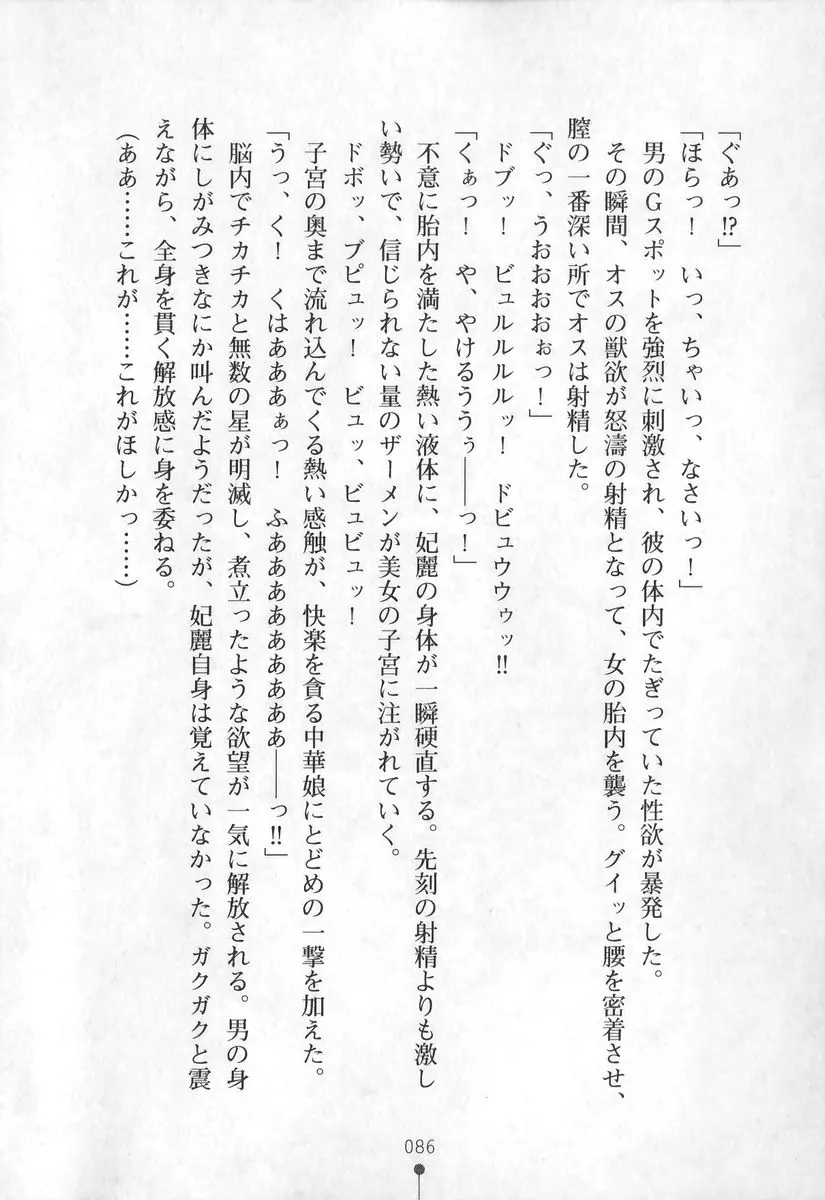 「ぐあっ!?」
「ほらっ！　いっ、ちゃいっ、なさいっ！」
　男のGスポットを強烈に刺激され、彼の体内でたぎっていた性欲が暴発した。
　その瞬間、オスの獣欲が怒濤の射精となって、女の胎内を襲う。グイッと腰を密着させ、
膣の一番深い所でオスは射精した。
「ぐっ、うおおおおぉっ！」
　ドブッ！　ビュルルルルッ！　ドビュウウゥッ!!
「くぁっ！　や、やけるううぅ――っ！」
　不意に胎内を満たした熱い液体に、妃麗の身体が一瞬硬直する。先刻の射精よりも激し
い勢いで、信じられない量のザーメンが美女の子宮に注がれていく。
　ドボッ、ブピュッ！　ビュッ、ビュビュッ！
　子宮の奥まで流れ込んでくる熱い感触が、快楽を貪る中華娘にとどめの一撃を加えた。
「うっ、く！　くはあああぁっ！　ふああああああああああ――っ!!」
　脳内でチカチカと無数の星が明滅し、煮立ったような欲望が一気に解放される。男の身
体にしがみつきなにか叫んだようだったが、妃麗自身は覚えていなかった。ガクガクと震
えながら、全身を貫く解放感に身を委ねる。
（ああ……これが……これがほしかっ……）
086